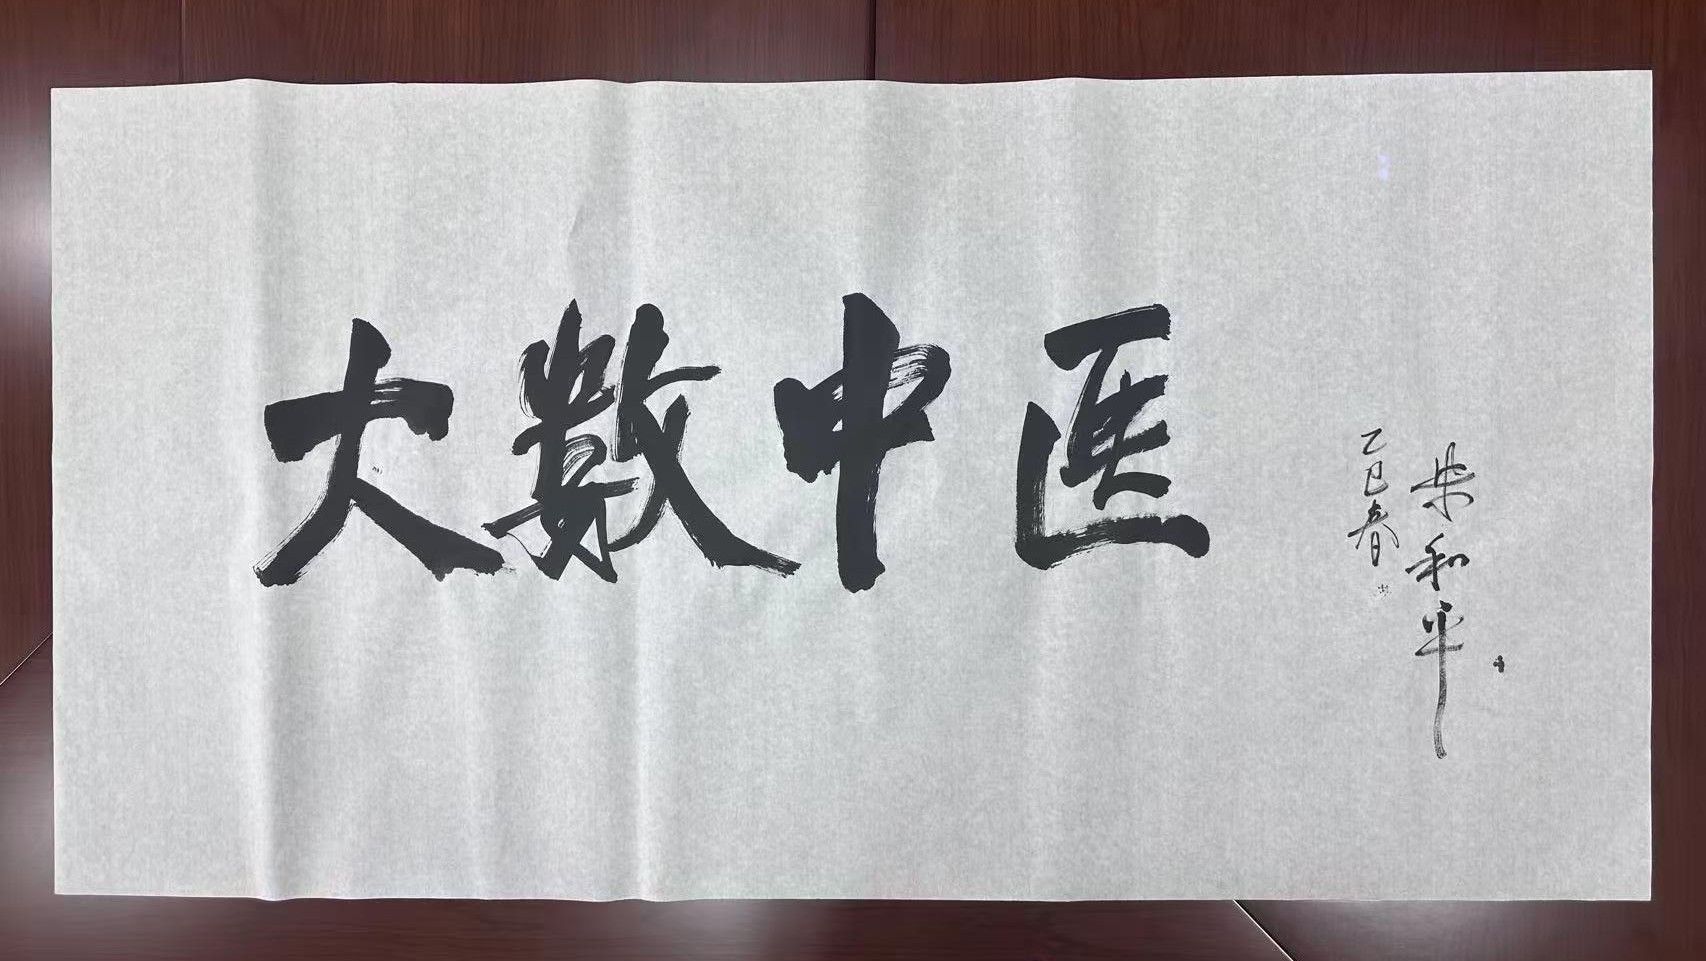 大数中医
乙巳春
和平